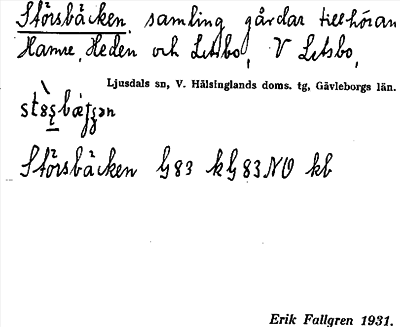 Störsbäcken, samling gårdar tillhöran
Hamre, Heden och Letsbo, V Letsbo,
Ljusdals sn, V. Hälsinglands doms. tg, Gävleborgs län.
Störsbäcken G83 kG83NO kb
Erik Fallgren 1931.